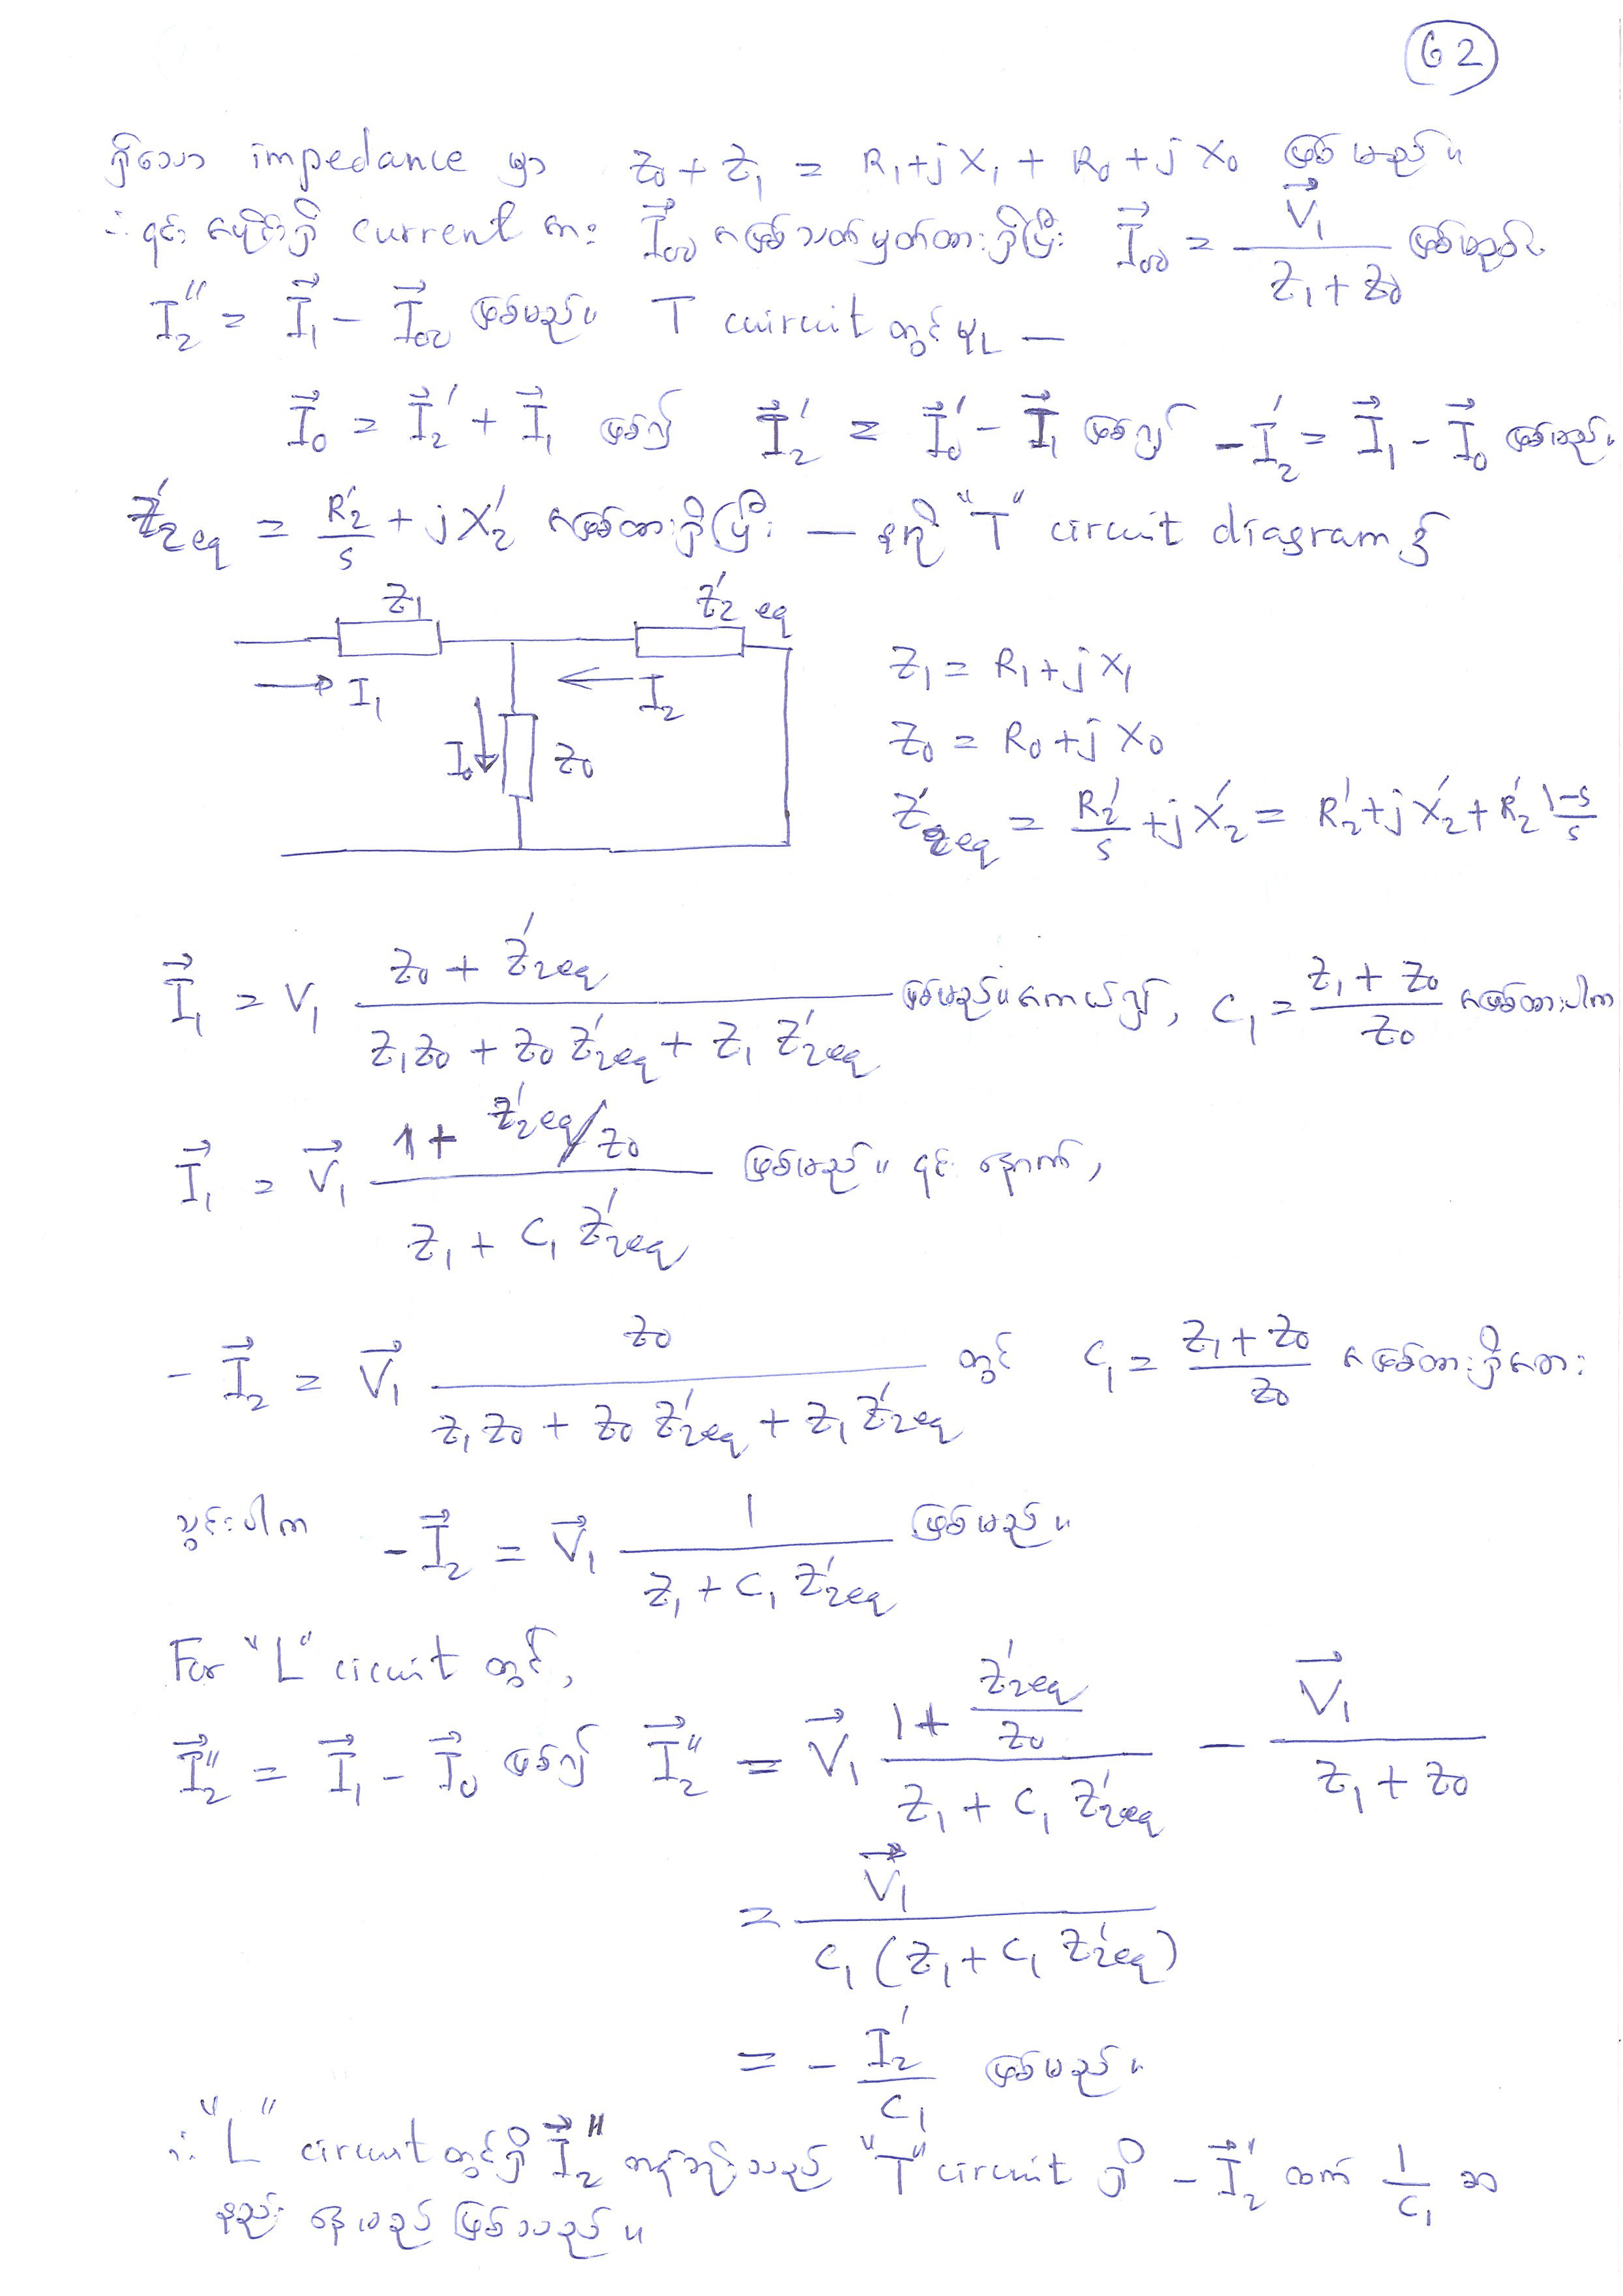 62
ရှိသော impedance မှာ Z₀ + Z₁ = R₁ + jX₁ + R₀ + jX₀ ဖြစ်မည်။
∴ ၎င်း ပေါ်ရှိ current အား I⃗₀₀ အဖြစ်သတ်မှတ်ထားရှိပြီး I⃗₀₀ = V⃗₁ / (Z₁ + Z₀) ဖြစ်မည်။
I₂″ = I⃗₁ − I⃗₀₀ ဖြစ်မည်။ T cuircuit တွင်မူ —
I⃗₀ = I⃗₂′ + I⃗₁ ဖြစ်၍ I⃗₂′ = I⃗₀′ − I⃗₁ ဖြစ်၍ −I₂′ = I⃗₁ − I⃗₀ ဖြစ်မည်။
Z′₂eq = R₂′/s + jX₂′ အဖြစ်ထားရှိပြီး — "T" circuit diagram ၌
Z₁
Z₂′ eq
I₁
I₂
I₀
Z₀
Z₁ = R₁ + jX₁
Z₀ = R₀ + jX₀
Z′₂eq = R₂′/s + jX₂′ = R₂′ + jX₂′ + R₂′ (1−s)/s
I⃗₁ = V₁ (Z₀ + Z′₂eq) / (Z₁Z₀ + Z₀ Z′₂eq + Z₁ Z′₂eq) ဖြစ်မည်။ အကယ်၍, C₁ = (Z₁ + Z₀) / Z₀ အဖြစ်ထားပါက
I⃗₁ = V⃗₁ (1 + Z′₂eq/Z₀) / (Z₁ + C₁ Z′₂eq) ဖြစ်မည်။ ၎င်း နောက်,
− I⃗₂ = V⃗₁ Z₀ / (Z₁Z₀ + Z₀ Z′₂eq + Z₁ Z′₂eq) တွင် C₁ = (Z₁ + Z₀) / Z₀ အဖြစ်ထားရှိသော
သွင်းပါက − I⃗₂ = V⃗₁ 1 / (Z₁ + C₁ Z′₂eq) ဖြစ်မည်။
For "L" cicuit တွင်,
I⃗₂″ = I⃗₁ − I⃗₀ ဖြစ်၍ I⃗₂″ = V⃗₁ (1 + Z′₂eq/Z₀) / (Z₁ + C₁ Z′₂eq) − V⃗₁ / (Z₁ + Z₀)
= V⃗₁ / C₁ (Z₁ + C₁ Z′₂eq)
= − I₂′/C₁ ဖြစ်မည်။
∴ "L" circuit တွင်ရှိ I⃗₂″ တန်ဘိုးသည် "T" circuit ရှိ − I⃗₂′ ထက် 1/C₁ ဆ
နည်းနေမည်ဖြစ်သည်။